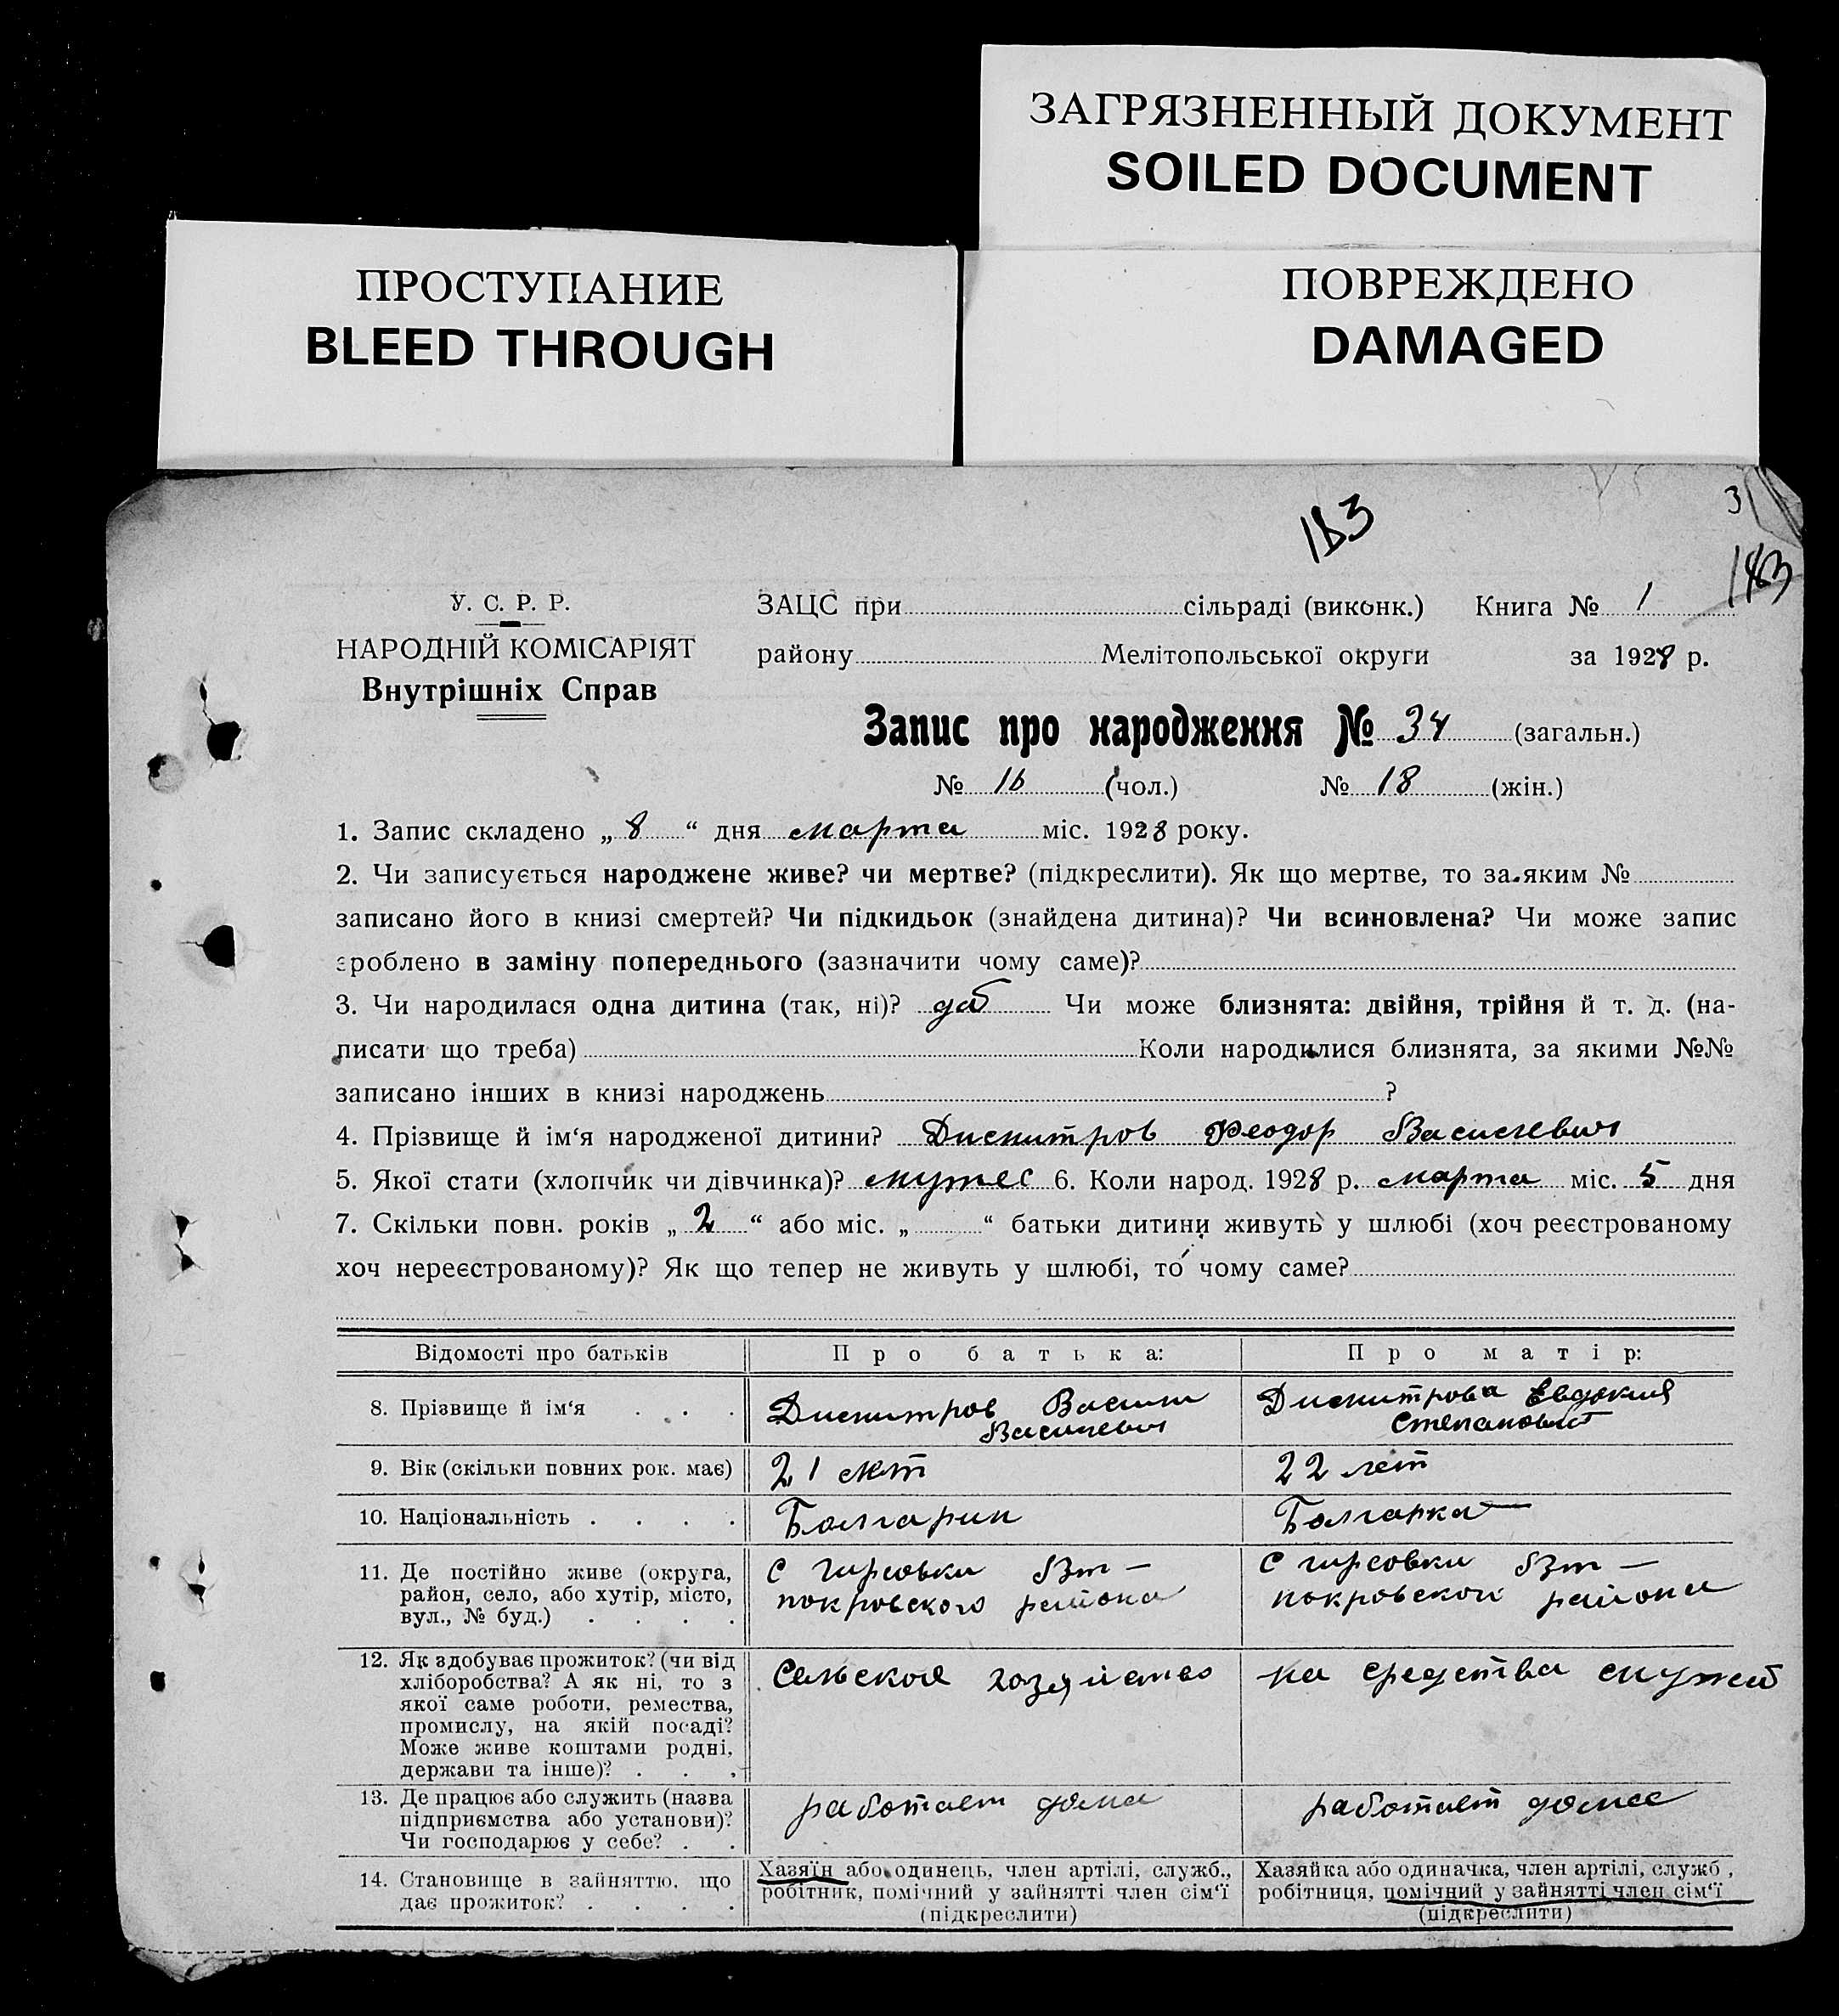 ЗАГРЯЗНЕННЫЙ ДОКУМЕНТ
SOILED DOCUMENT
ПРОСТУПАНИЕ
BLEED THROUGH
ПОВРЕЖДЕНО
DAMAGED
3
183
183
У. С. Р. Р.
НАРОДНІЙ КОМІСАРІЯТ
Внутрішніх Справ
ЗАЦС при сільраді (виконк.) Книга № 1
району Мелітопольської округи за 1928 р.
Запис про народження № 34 (загальн.)
№ 16 (чол.) № 18 (жін.)
1. Запис складено „ 8 “ дня марта міс. 1928 року.
2. Чи записується народжене живе? чи мертве? (підкреслити). Як що мертве, то за яким №
записано його в книзі смертей? Чи підкидьок (знайдена дитина)? Чи всиновлена? Чи може запис
зроблено в заміну попереднього (зазначити чому саме)?
3. Чи народилася одна дитина (так, ні)? да Чи може близнята: двійня, трійня й т. д. (на-
писати що треба) Коли народилися близнята, за якими №№
записано інших в книзі народжень ?
4. Прізвище й ім‘я народженої дитини? Димитров Феодор Васильевич
5. Якої стати (хлопчик чи дівчинка)? мужес 6. Коли народ. 1928 р. марта міс. 5 дня
7. Скільки повн. років „ 2 “ або міс. „ “ батьки дитини живуть у шлюбі (хоч реєстрованому
хоч нереєстрованому)? Як що тепер не живуть у шлюбі, то чому саме?
Відомості про батьків Про батька: Про матір:
8. Прізвище й ім‘я . . . Димитров Васили Васильевич Димитрова Евдокия Степановна
9. Вік (скільки повних рок. має) 21 лет 22 лет
10. Національність . . . . Болгарин Болгарка
11. Де постійно живе (округа, район, село, або хутір, місто, вул., № буд.) . . . . С Гирсовки Вт— покровского района С Гирсовки Вт— покровского района
12. Як здобуває прожиток? (чи від хліборобства? А як ні, то з якої саме роботи, ремества, промислу, на якій посаді? Може живе коштами родні, держави та інше)? . . . Сельское хозяйство на средства мужа
13. Де працює або служить (назва підприємства або установи)? Чи господарює у себе? . . работает дома работает дома
14. Становище в зайняттю, що дає прожиток? . . . . Хазяїн або одинець, член артілі, служб., робітник, помічний у зайнятті член сім‘ї (підкреслити) Хазяйка або одиначка, член артілі, служб , робітниця, помічний у зайнятті член сім‘ї (підкреслити)